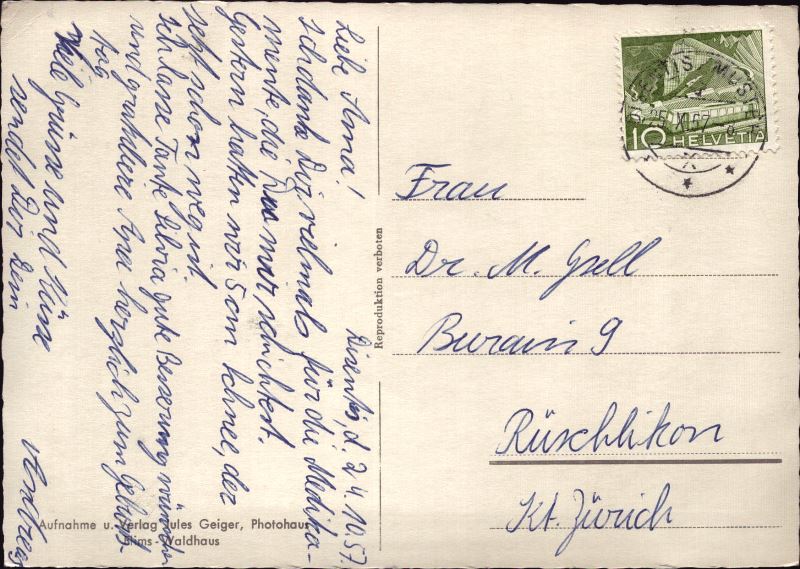 Disentis, d. 24.10.57.
Liebe Ama!
Ich danke Dir vielmals für die Medika-
mente, die Du mir schicktest.
Gestern hatten wir 5cm Schnee, der
jetzt schon weg ist.
Ich lasse Tante Silvia gute Besserung wünschen
und gratuliere Apa herzlich zum Geburts-
tag
Viele Grüsse und Küsse
sendet Dir Dein
Andreas
Aufnahme u. Verlag Jules Geiger, Photohaus
Flims-Waldhaus
Reproduktion verboten
HELVETIA
10
25. X. 57
Frau
Dr. M. Gsell
Burain 9
Rüschlikon
Kt. Zürich